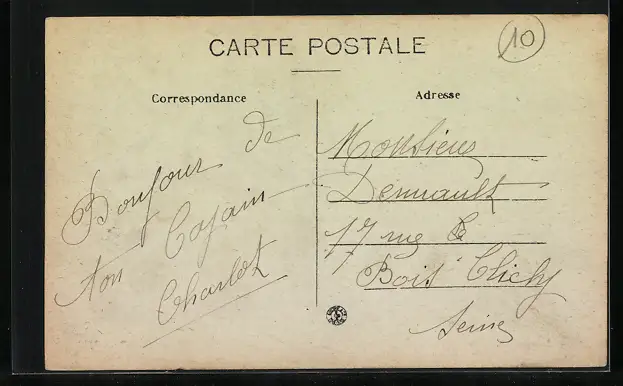 CARTE POSTALE
10
Correspondance
Adresse
Bonjour de
ton Copain
Charlot
Monsieur
Denuault
17 rue
Bois Clichy
Seine